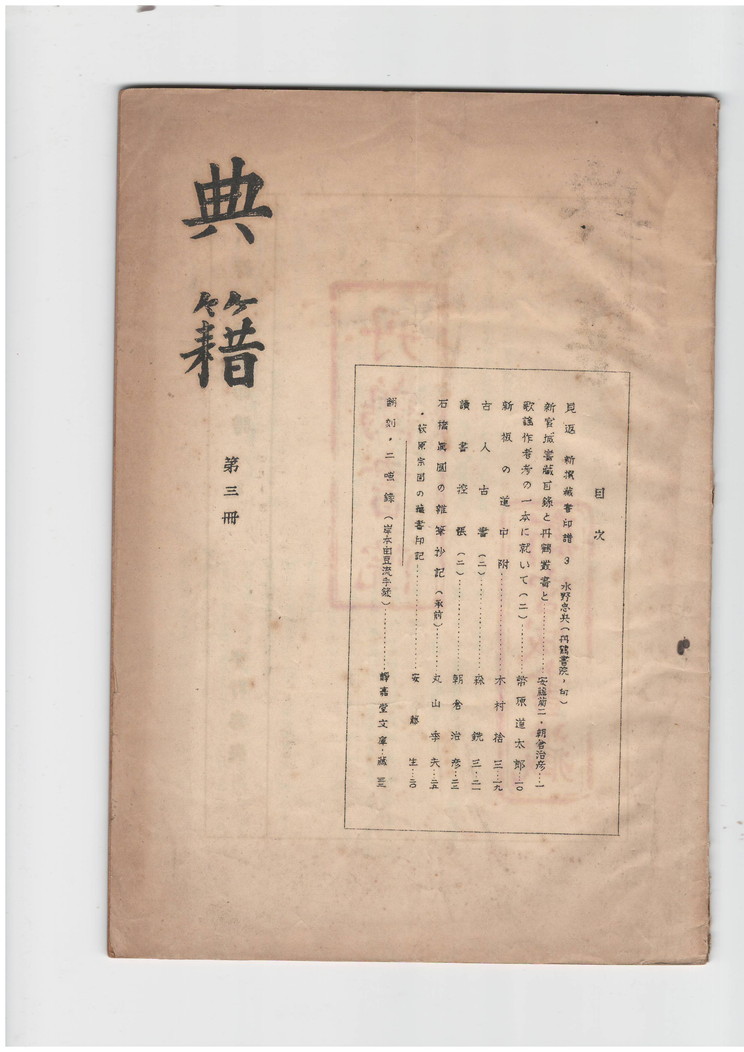 典籍
第三冊
目次
見返 新撰藏書印譜 3 水野忠央(丹鶴書院,印)
新宮城書藏目錄と丹鶴叢書と………安藤菊二・朝倉治彦…一
歌謠作者考の一本に就いて(二)………幣原道太郎…一〇
新板の道中附………木村捨三…一九
古人古書(二)………森銑三…二一
讀書控帳(二)………朝倉治彦…二三
石橋眞國の雜筆抄記(承前)………丸山季夫…二五
・萩原宗固の藏書印記………安藤生…三〇
翻刻,二喜錄(岸本由豆流手錄)………靜嘉堂文庫・藏